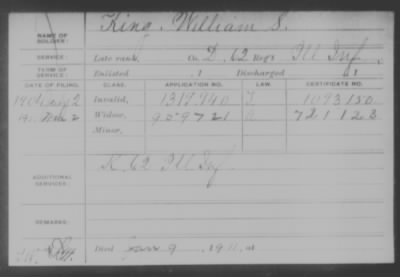 King, William S.
NAME OF SOLDIER:
SERVICE: Late rank, Co. D, 62 Reg't Ill Inf.
TERM OF SERVICE: Enlisted , 1 Discharged , 1
DATE OF FILING. CLASS. APPLICATION NO. LAW. CERTIFICATE NO.
1904 2 Invalid, 1319940 1093150
Widow, 959721 721123
Minor,
ADDITIONAL SERVICES: K. 62 Ill Inf.
REMARKS:
Died 9, 1911, at